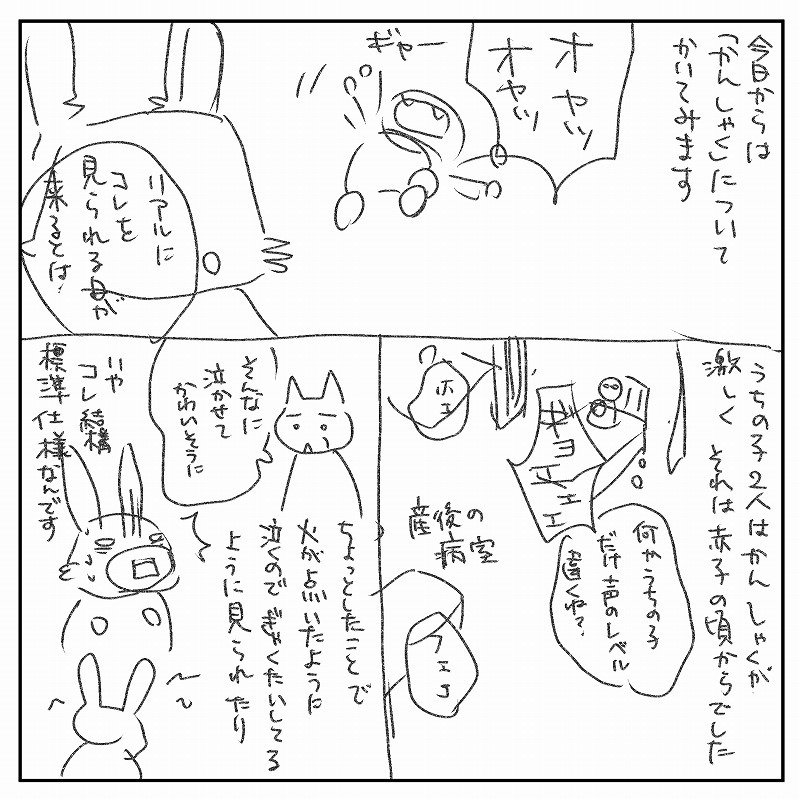 今日からは
「かんしゃく」について
かいてみます
オャッ
オャッ
ギャー
リアルに
コレを
見られる日が
来るとは!
うちの子2人はかんしゃくが
激しく それは赤子の頃からでした
ギョエエエ
何かうちの子
だけ声のレベル
違くね?
ホエ
産後の
病室
フエ
ちょっとしたことで
火が点いたように
泣くので ぎゃくたいしてる
ように見られたり
そんなに
泣かせて
かわいそうに
いや
コレ結構
標準仕様なんです